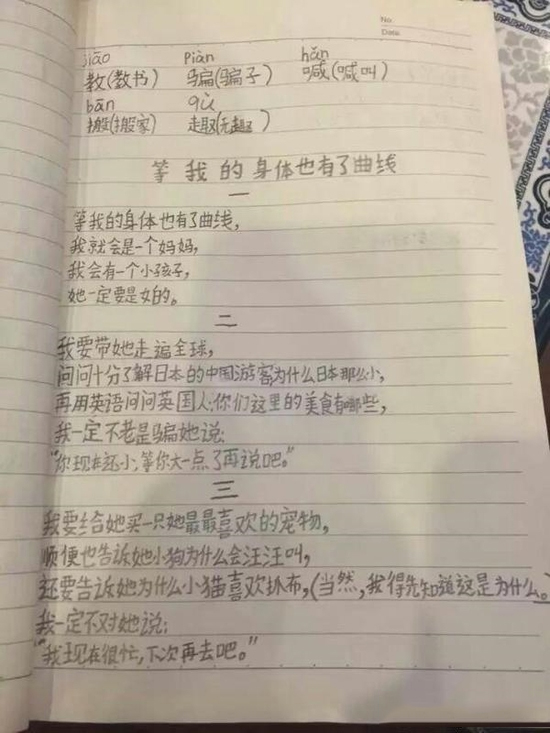 No.
Date
jiāo piàn hǎn
教(教书) 骗(骗子) 喊(喊叫)
bān qù
搬(搬家) 趣(无趣)
等我的身体也有了曲线
一
等我的身体也有了曲线,
我就会是一个妈妈,
我会有一个小孩子,
她一定要是女的。
二
我要带她走遍全球,
问问十分了解日本的中国游客为什么日本那么小,
再用英语问问英国人:你们这里的美食有哪些,
我一定不老是骗她说:
“你现在还小,等你大一点了再说吧。”
三
我要给她买一只她最最喜欢的宠物,
顺便也告诉她小狗为什么会汪汪叫,
还要告诉她为什么小猫喜欢扒布,(当然,我得先知道这是为什么。
我一定不对她说:
“我现在很忙,下次再去吧。”